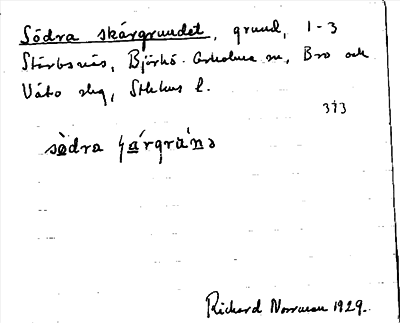 Södra skärgrundet, grund, 1-3
Störbsnäs, Björkö-Arholma sn, Bro och
Väto slg, Sthlms l.
373
södra ʃärgrünə
Richard Norrman 1929.